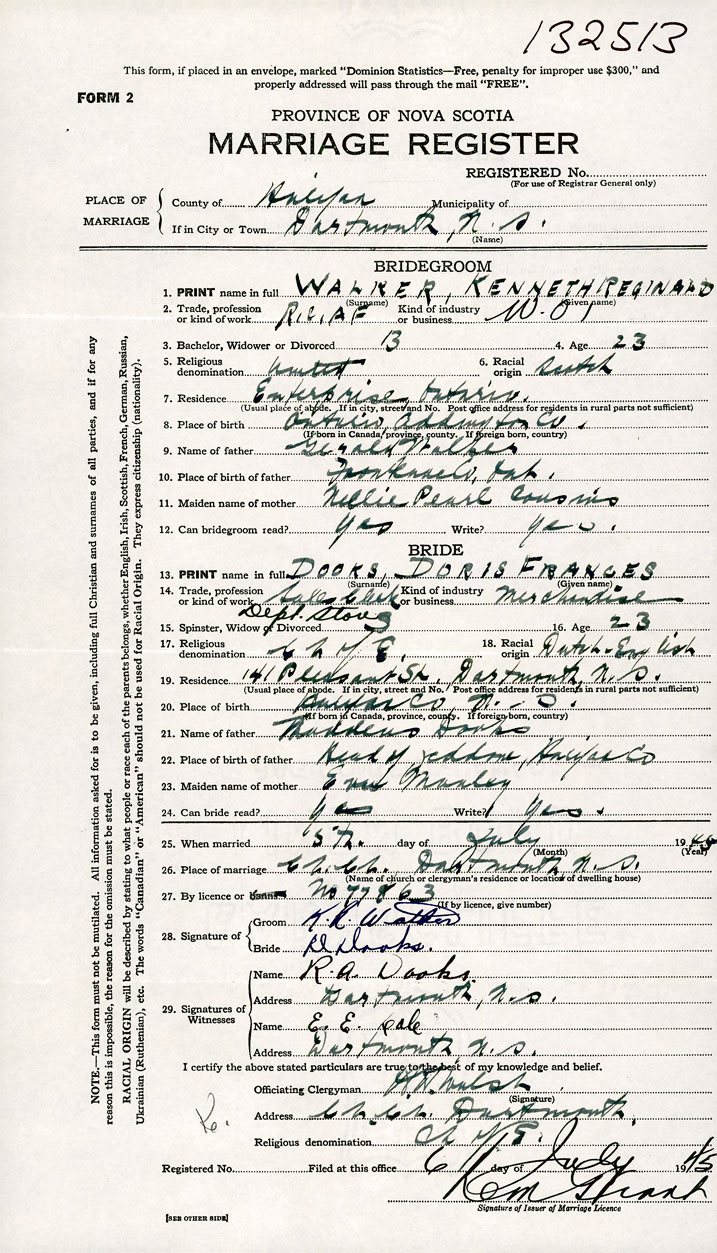 132513
This form, if placed in an envelope, marked “Dominion Statistics—Free, penalty for improper use $300,” and
properly addressed will pass through the mail “FREE”.
FORM 2
PROVINCE OF NOVA SCOTIA
MARRIAGE REGISTER
REGISTERED No.
(For use of Registrar General only)
PLACE OF MARRIAGE
County of Halifax Municipality of
If in City or Town Dartmouth, N. S.
(Name)
BRIDEGROOM
1. PRINT name in full WALKER, KENNETH REGINALD
(Surname) (Given name)
2. Trade, profession or kind of work R.C.A.F Kind of industry or business W.O.1
3. Bachelor, Widower or Divorced B 4. Age 23
5. Religious denomination United 6. Racial origin Scotch
7. Residence Enterprise, Ontario.
(Usual place of abode. If in city, street and No. Post office address for residents in rural parts not sufficient)
8. Place of birth Ontario, Addington Co.
(If born in Canada, province, county. If foreign born, country)
9. Name of father Gerald Walker
10. Place of birth of father Ont.
11. Maiden name of mother Nellie Pearl Cousins
12. Can bridegroom read? Yes Write? Yes.
BRIDE
13. PRINT name in full DOOKS, DORIS FRANCES
(Surname) (Given name)
14. Trade, profession or kind of work Sales Clerk Kind of industry or business Merchandise
Dept. Store
15. Spinster, Widow or Divorced S 16. Age 23
17. Religious denomination Ch of E. 18. Racial origin Dutch-English
19. Residence 141 Pleasant St. Dartmouth, N. S.
(Usual place of abode. If in city, street and No. Post office address for residents in rural parts not sufficient)
20. Place of birth Halifax Co, N. S.
(If born in Canada, province, county. If foreign born, country)
21. Name of father Dooks
22. Place of birth of father Head of Jeddore, Halifax Co
23. Maiden name of mother Eva Manley
24. Can bride read? Yes Write? Yes.
25. When married 5th. day of July 1945
(Month) (Year)
26. Place of marriage Ch. Ch. Dartmouth N. S.
(Name of church or clergyman's residence or location of dwelling house)
27. By licence or banns No 77863
(If by licence, give number)
28. Signature of
Groom K.R. Walker
Bride D Dooks.
29. Signatures of Witnesses
Name R. A. Dooks
Address Dartmouth, N.S.
Name E. E.
Address Dartmouth N. S.
I certify the above stated particulars are true to the best of my knowledge and belief.
Officiating Clergyman Walsh
(Signature)
Address Ch. Ch. Dartmouth,
Religious denomination Ch of E.
Registered No. Filed at this office 6 day of July 1945
Signature of Issuer of Marriage Licence
[SEE OTHER SIDE]
NOTE.—This form must not be mutilated. All information asked for is to be given, including full Christian and surnames of all parties, and if for any
reason this is impossible, the reason for the omission must be stated.
RACIAL ORIGIN will be described by stating to what people or race each of the parents belongs, whether English, Irish, Scottish, French, German, Russian,
Ukrainian (Ruthenian), etc. The words “Canadian” or “American” should not be used for Racial Origin. They express citizenship (nationality).